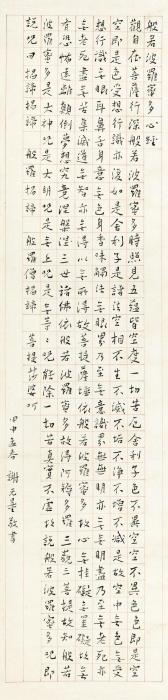 般若波羅蜜多心經
觀自在菩薩行深般若波羅蜜多時照見五蘊皆空度一切苦厄舍利子色不異空空不異色色即是
空空即是色受想行識亦復如是舍利子是諸法空相不生不滅不垢不淨不增不減是故空中無色無受
想行識無眼耳鼻舌身意無色聲香味觸法無眼界乃至無意識界無無明亦無無明盡乃至無老死亦
無老死盡無苦集滅道無智亦無得以無所得故菩提薩埵依般若波羅蜜多故心無罣礙無罣礙故無
有恐怖遠離顛倒夢想究竟涅槃三世諸佛依般若波羅蜜多故得阿耨多羅三藐三菩提故知般若
波羅蜜多是大神呪是大明呪是無上呪是無等等呪能除一切苦真實不虛故說般若波羅蜜多呪即
說呪曰 揭諦揭諦 般羅揭諦 般羅僧揭諦 菩提莎婆呵
甲申孟春 謝元 敬書